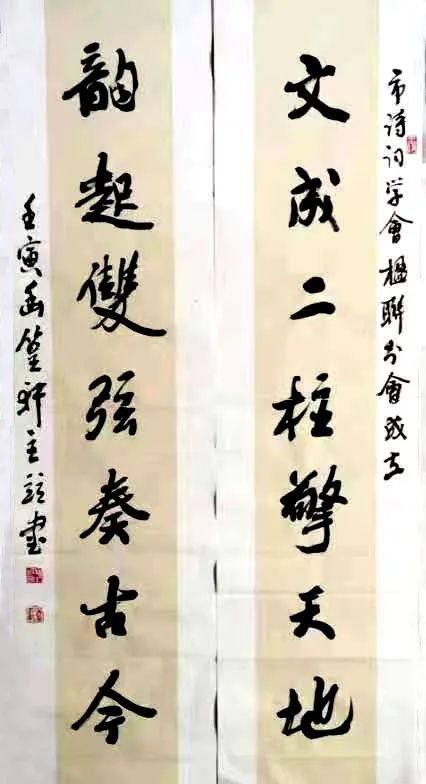 市诗词学會楹聯分會成立
文成二柱擎天地
韵起雙弦奏古今
壬寅幽篁軒主書